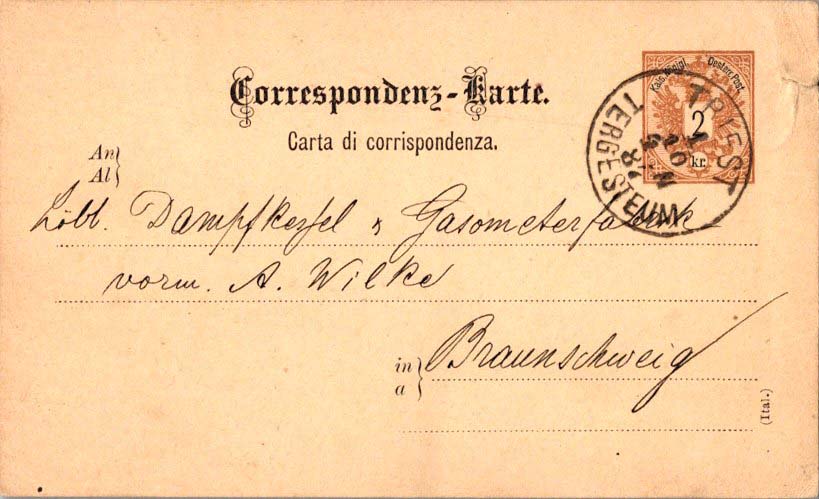 Correspondenz-Karte.
Carta di corrispondenza.
Kais. Königl. Oesterr. Post.
2
kr.
TRIEST
TERGESTEUM
An
Al
Löbl. Dampfkessel & Gasometerfabrik
vorm. A. Wilke
in
a
Braunschweig
(Ital.)